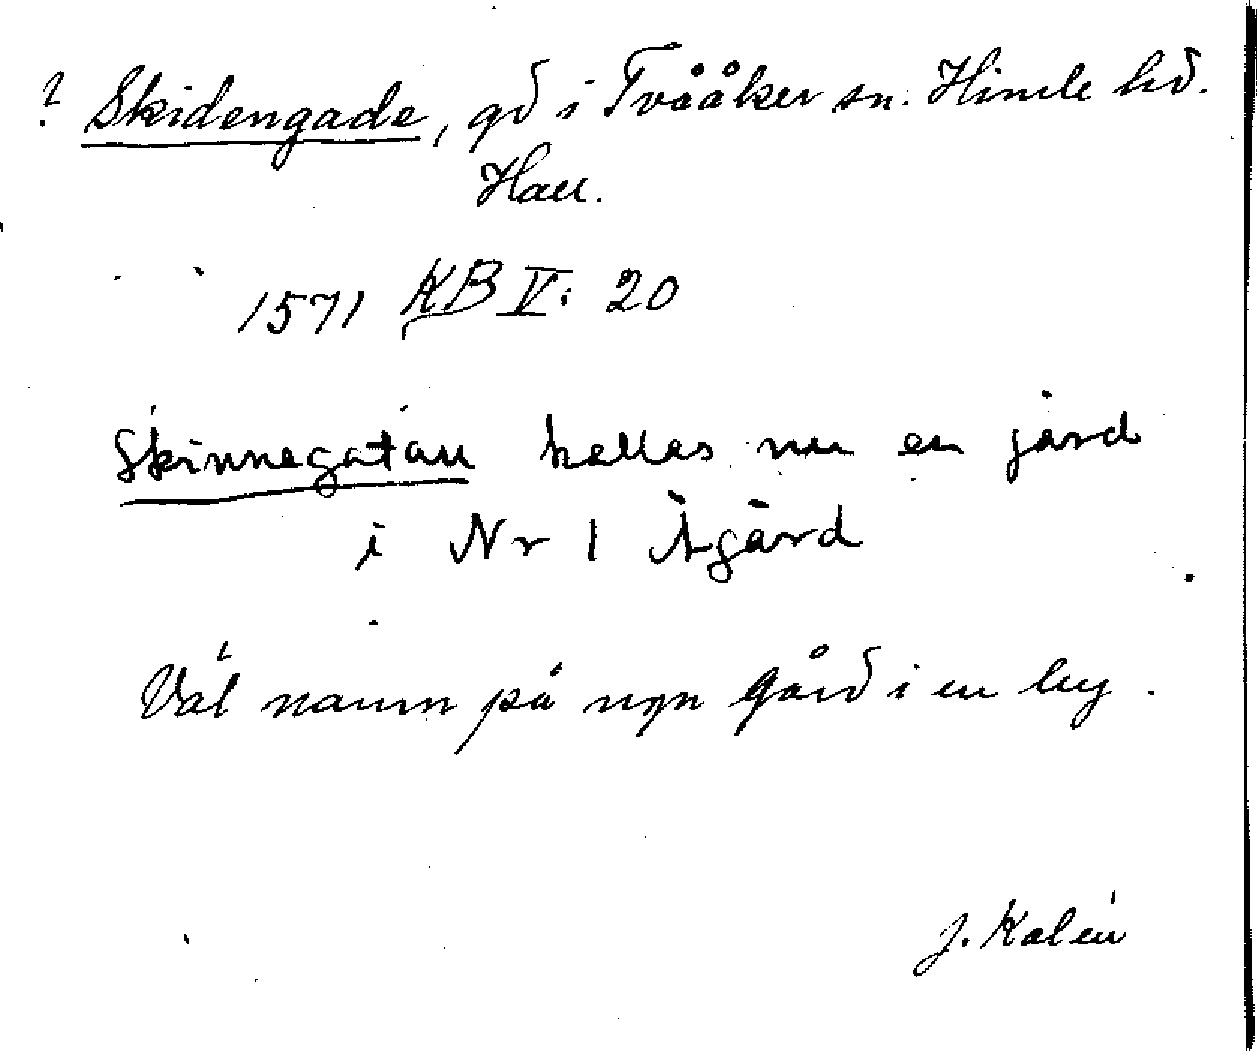 ? Skidengade, gd i Tvååker sn. Himle hd.
Hall.
1571 KB V: 20
Skinnegatan kallas nu en gård
i Nr 1 Ågård
Väl namn på ngn gård i en by.
J. Kalén